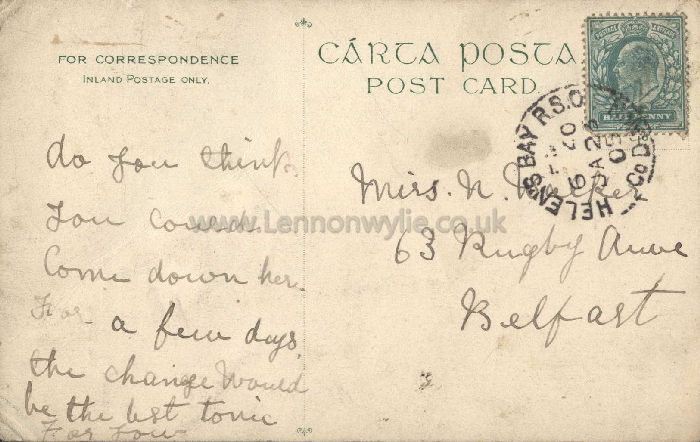 FOR CORRESPONDENCE
INLAND POSTAGE ONLY.
CÁRTA POSTA
POST CARD
HALFPENNY
HELEN'S BAY R.S.O.
Co D
6 20
JA 26
05
do you think
you could
Come down here
For a few days
the change would
be the best tonic
For you
Miss. N.
63 Rugby Avue
Belfast
www.Lennonwylie.co.uk